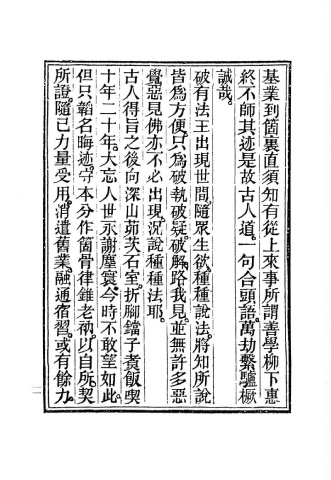 基業到箇裏直須知有從上來事所謂善學柳下惠
終不師其迹是故古人道。一句合頭語。萬劫繫驢橛。
誠哉。
破有法王出現世間。隨眾生欲。種種說法。將知所說
皆為方便。只為破執破疑。破解路我見。並無許多惡
覺惡見。佛亦不必出現。況說種種法耶。
古人得旨之後。向深山茆茨石室。折腳鐺子煑飯喫
十年二十年。大忘人世。永謝塵寰。今時不敢望如此。
但只韜名晦迹。守本分作箇骨律錐老衲。以自所契
所證。隨己力量受用。消遣舊業。融通宿習。或有餘力。